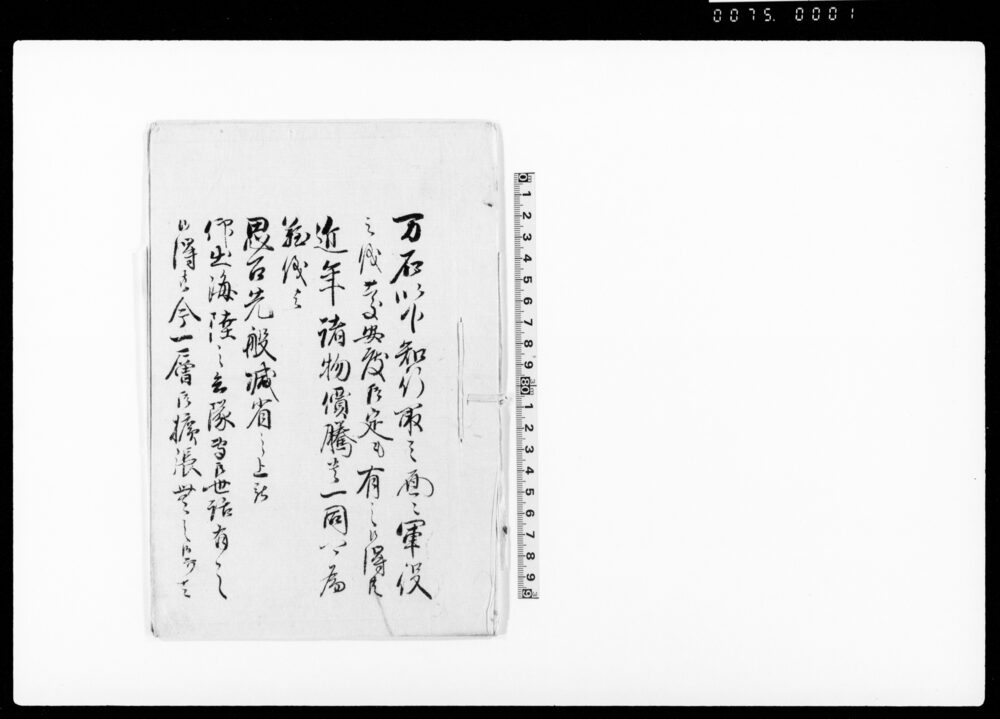 0075. 0001
万石以下知行取之面々軍役
之儀慶安度御定も有之候得共
近年諸物價騰貴一同可為
難儀之
思召先般減省之上被
仰出海陸之兵隊等御世話有之
候得共今一層御擴張無之候而者
0 1 2 3 4 5 6 7 8 9 80 1 2 3 4 5 6 7 8 9